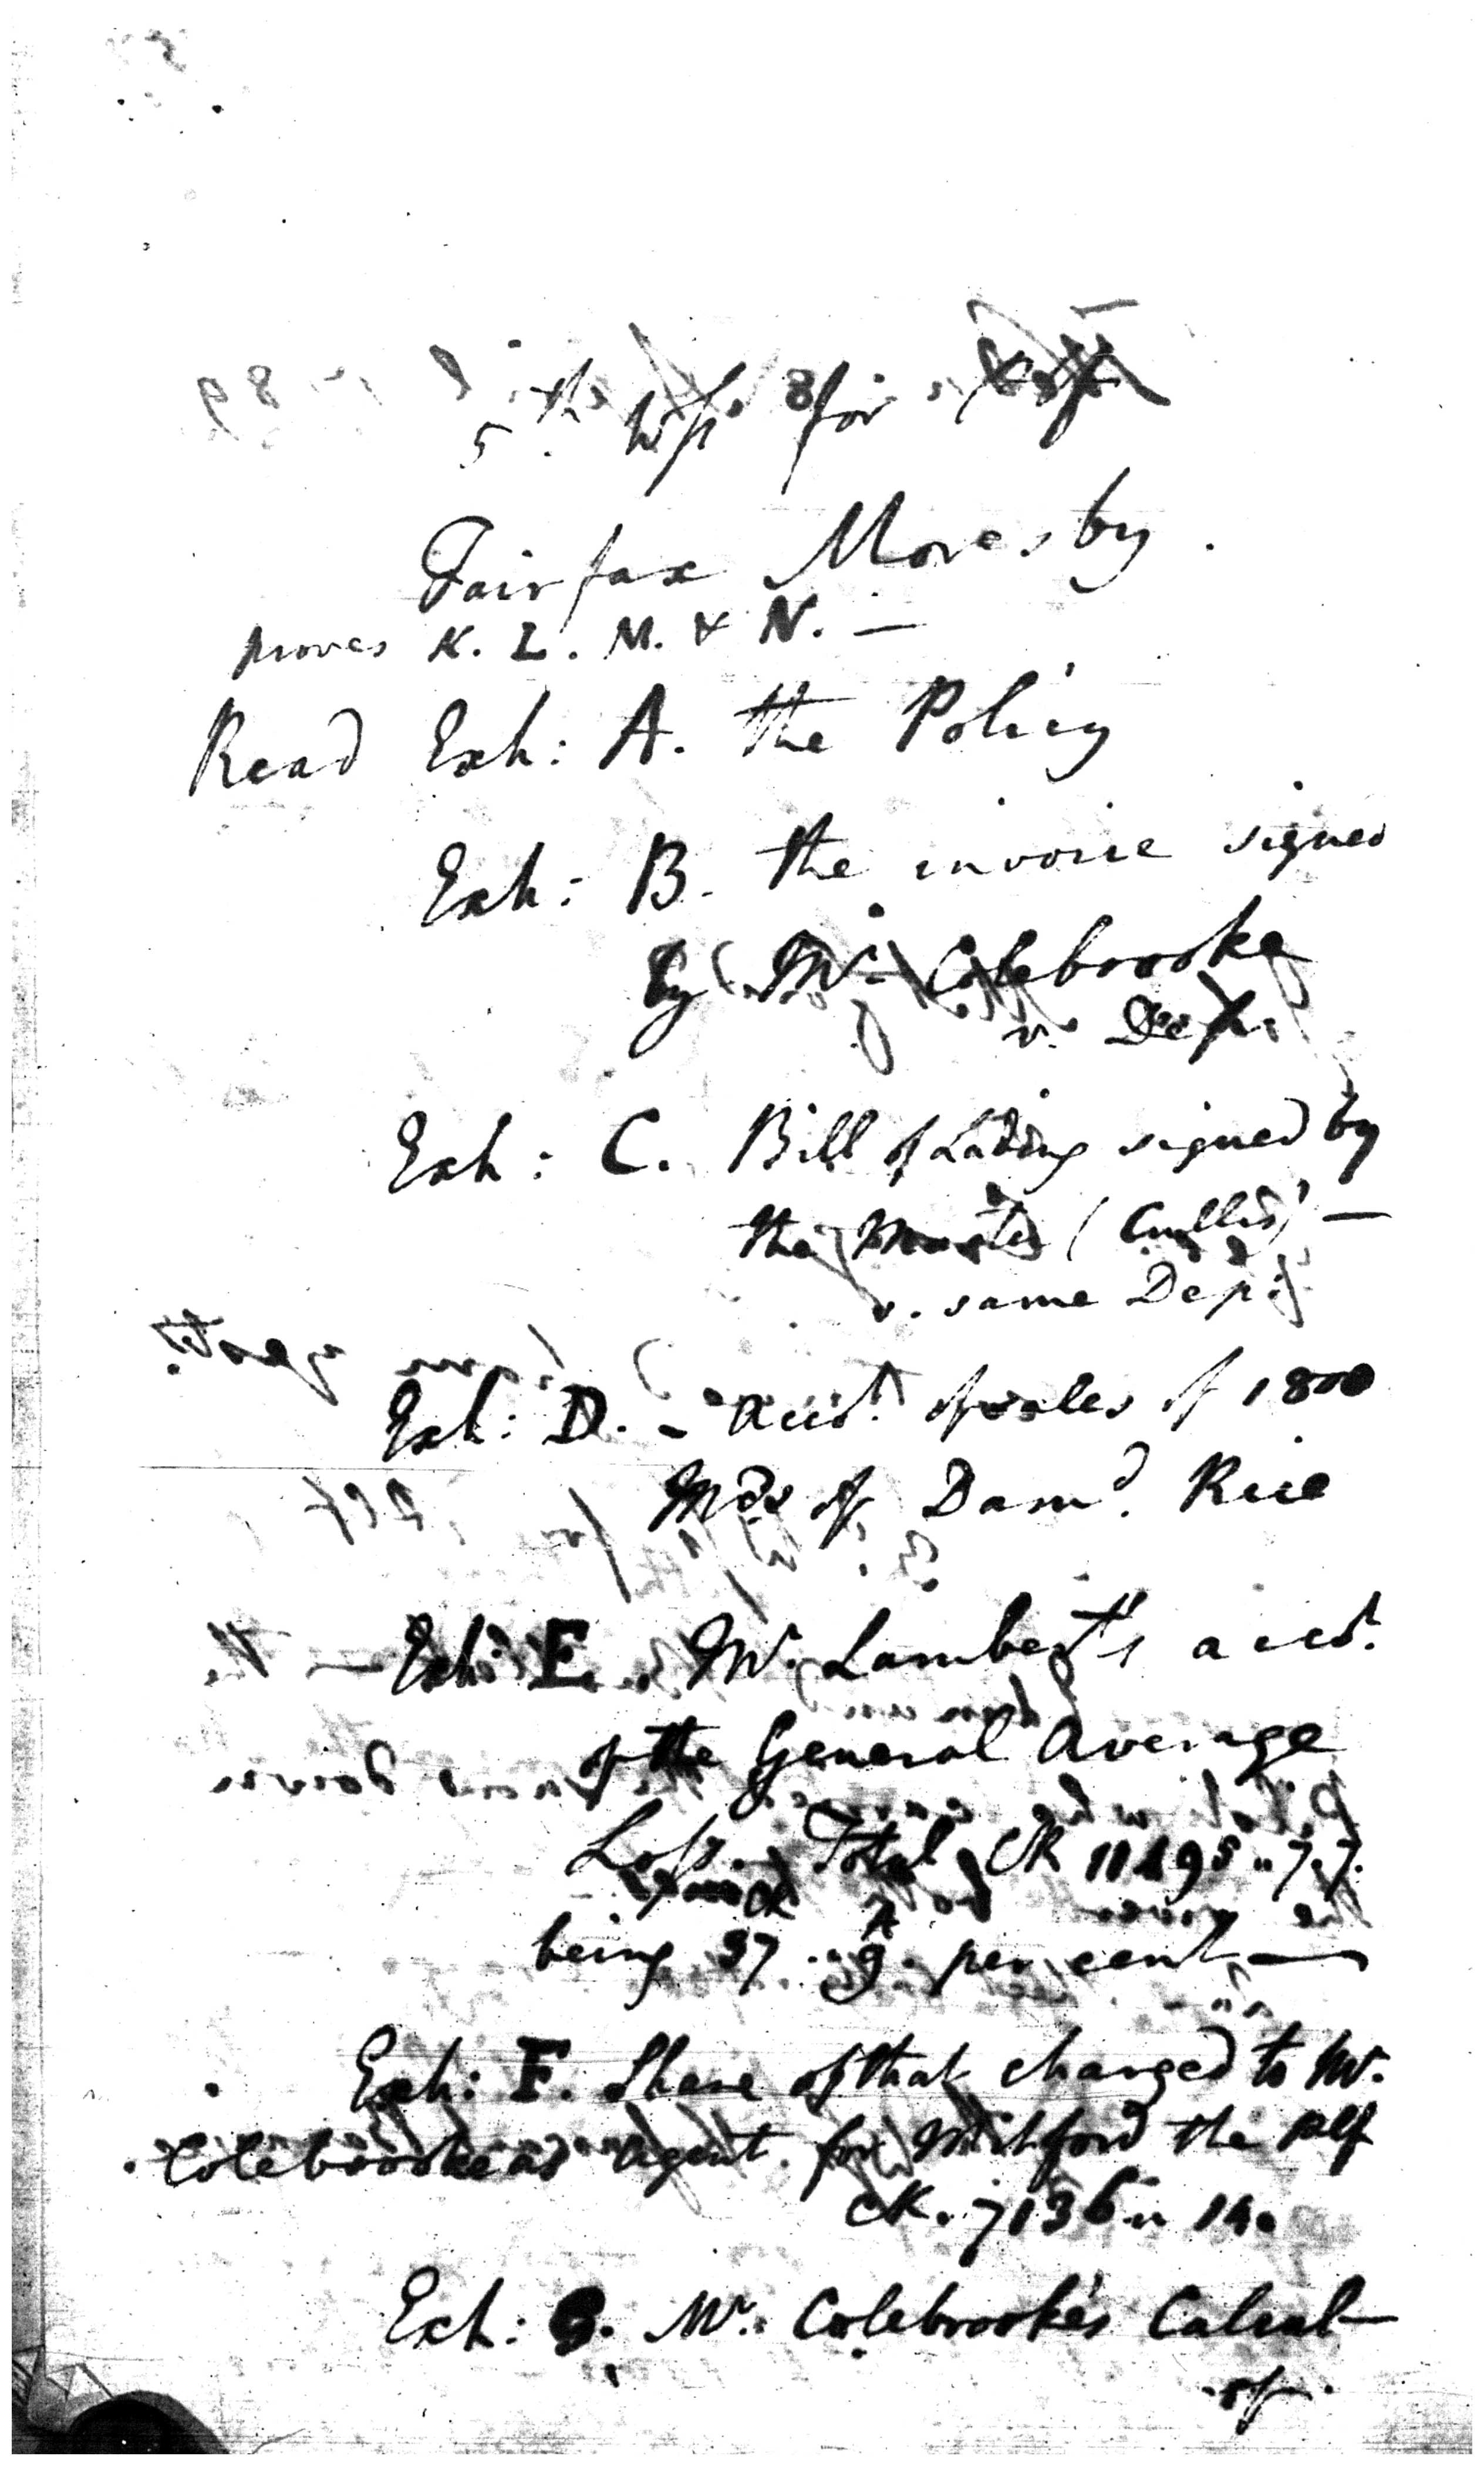 5th Wss. for
Fairfax Moresby.
proves K. L. M. & N. —
Read Exh: A. the Policy
Exh: B. the invoice signed
by Mr. Colebrooke
v. Dep.
Exh: C. Bill of Lading signed by
the Master (Cullis) —
v. same Dep:
Exh: D. - acct. of sales of 1800
Mds of Damd. Rice
Exh: E. Mr. Lambert's acct.
of the General Average
Loss. Total CR 11195 " 7. 7.
being 37 .. 9 per cent —
Exh: F. Share of that charged to Mr.
Colebrooke as Agent for Mitford the Plf
CR. 7136 " 14.
Exh: G. Mr. Colebrooke's Calcul
of